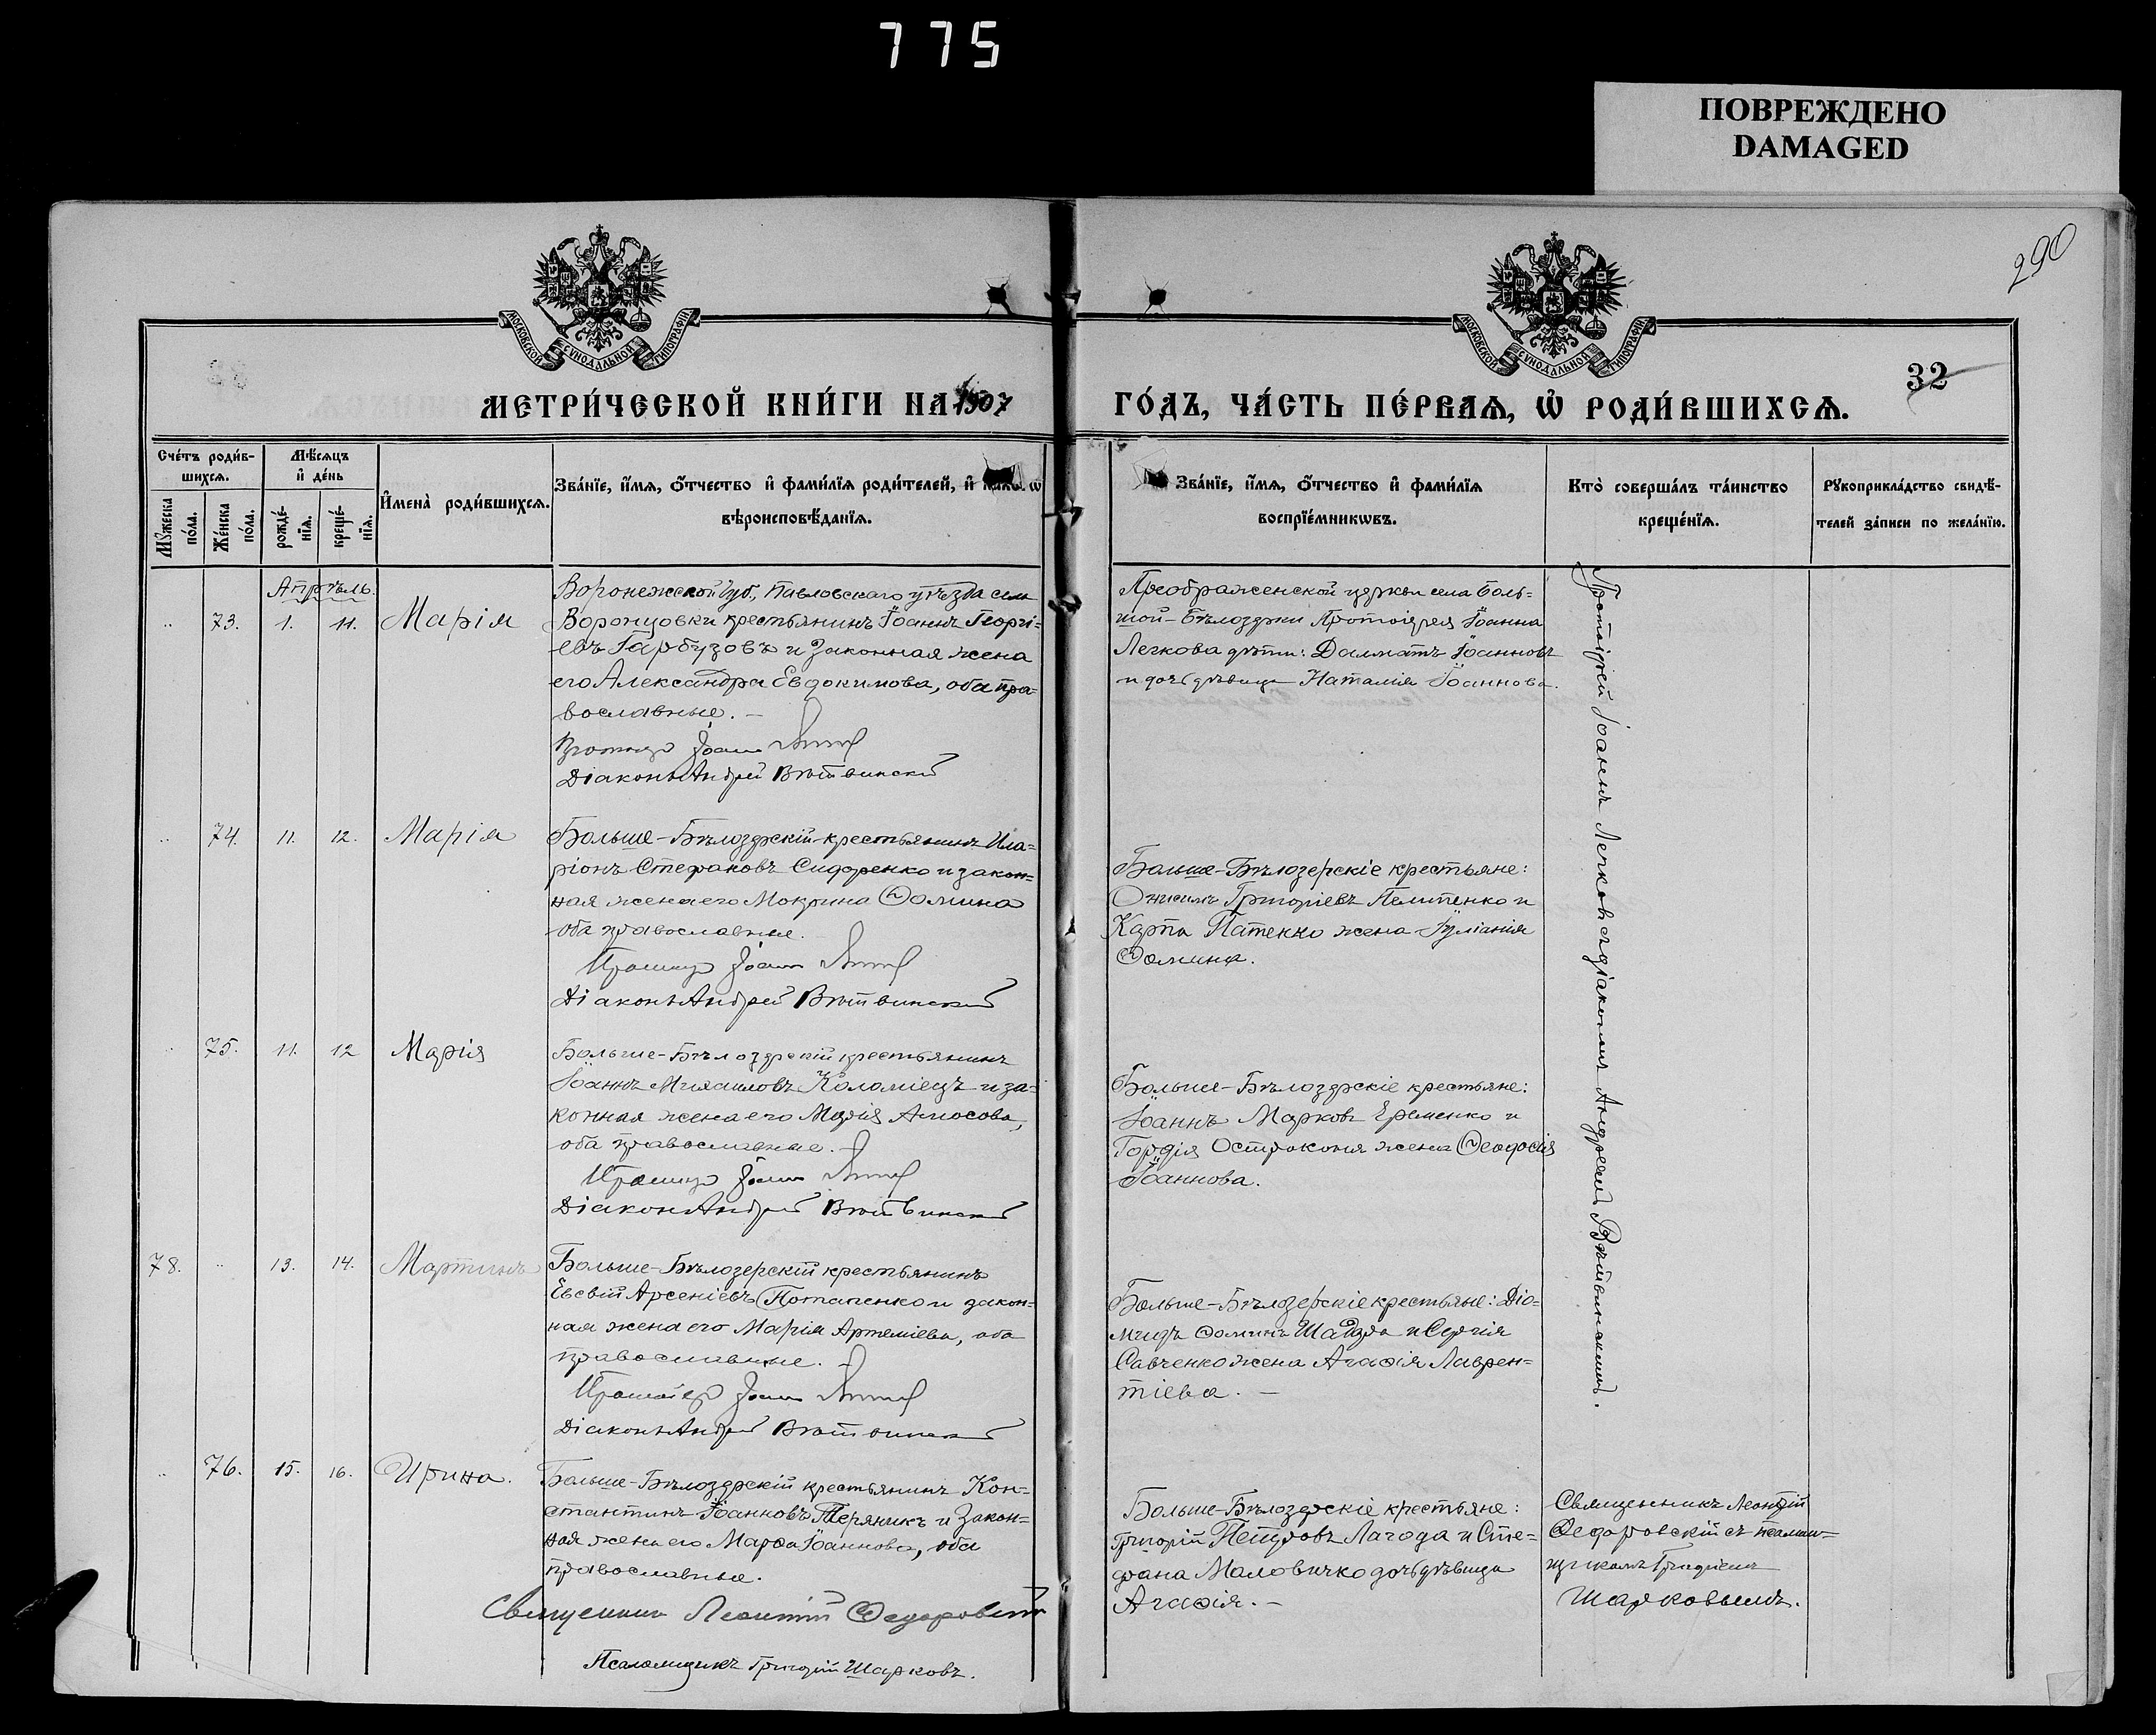 775
ПОВРЕЖДЕНО
DAMAGED
290
МОСКОВСКОЙ СѴНОДАЛЬНОЙ ТИПОГРАФІИ
МОСКОВСКОЙ СѴНОДАЛЬНОЙ ТИПОГРАФІИ
32
МЕТРИ́ЧЕСКОЙ КНИ́ГИ НА 1907
ГО́ДЪ, ЧА́СТЬ ПЕ́РВАѦ, Ѡ҆ РОДИ́ВШИХСѦ.
Сче́тъ роди́в-
шихсѧ.
Мꙋ́жеска по́ла.
Же́нска по́ла.
Мѣ́сяцъ
и҆ де́нь
рожде́-нїѧ.
креще́-нїѧ.
И҆мена̀ роди́вшихсѧ.
Зва́нїе, и҆́мѧ, ѻ҆́тчество и҆ фами́лїѧ роди́телей, и҆
вѣроисповѣ́данїѧ.
Зва́нїе, и҆́мѧ, ѻ҆́тчество и҆ фами́лїѧ
воспрїе́мникѡвъ.
Кто̀ соверша́лъ та́инство
креще́нїѧ.
Рꙋкоприкла́дство свидѣ́-
телей за́писи по жела́нїю.
Апрѣль.
73. 1. 11. Марія
Воронежской губ., Павловскаго уѣзда села
Воронцовки крестьянинъ Іоаннъ Георгі=
евъ Гарбузовъ и законная жена
его Александра Евдокимова, оба пра=
вославные. –
Іоаннъ
Діаконъ Андрей Вѣтвинскій
Преображенской церкви села Боль=
шой-Бѣлозерки Протоіерея Іоанна
Легкова дѣти: Далматъ Іоанновъ
и дочь дѣвица Наталія Іоаннова.
Протоіерей Іоаннъ Легковъ съ діакономъ Андреемъ Вѣтвинскимъ.
74. 11. 12. Марія
Больше-Бѣлозерскій крестьянинъ Ила=
ріонъ Стефановъ Сидоренко и закон=
ная жена его Мокрина Ѳомина
оба православные.
Іоаннъ
Діаконъ Андрей Вѣтвинскій
Больше-Бѣлозерскіе крестьяне:
Онисимъ Григоріевъ Пелипенко и
Карпа жена Іуліанія
Ѳомина.
75. 11. 12 Марія
Больше-Бѣлозерскій крестьянинъ
Іоаннъ Михаиловъ Коломіецъ и за=
конная жена его Марія Амосова,
оба православные. –
Іоаннъ
Діаконъ Андрей Вѣтвинскій
Больше-Бѣлозерскіе крестьяне:
Іоаннъ Марковъ Еременко и
Гордія Остроконя жена Ѳеодосія
Іоаннова.
78. 13. 14. Мартинъ
Больше-Бѣлозерскій крестьянинъ
Евсевій Арсеніевъ Потапенко и закон=
ная жена его Марія Артеміева, оба
православные. –
Протоіерей Іоаннъ
Діаконъ Андрей Вѣтвинскій
Больше-Бѣлозерскіе крестьяне: Діо=
мидъ Ѳоминъ и Сергія
Савченко жена Агаѳія Лаврен=
тіева. –
76. 15. 16. Ирина.
Больше-Бѣлозерскій крестьянинъ Кон=
стантинъ Іоанновъ Теряникъ и закон=
ная жена его Марѳа Іоаннова, оба
православные.
Священникъ Леонтій Ѳедоровскій
Псаломщикъ Григорій Шарковъ.
Больше-Бѣлозерскіе крестьяне:
Григорій Петровъ Лагода и Сте=
фана Маловичко дочь дѣвица
Агаѳія. –
Священникъ Леонтій
Ѳедоровскій съ псалом=
щикомъ Григоріемъ
Шарковымъ.